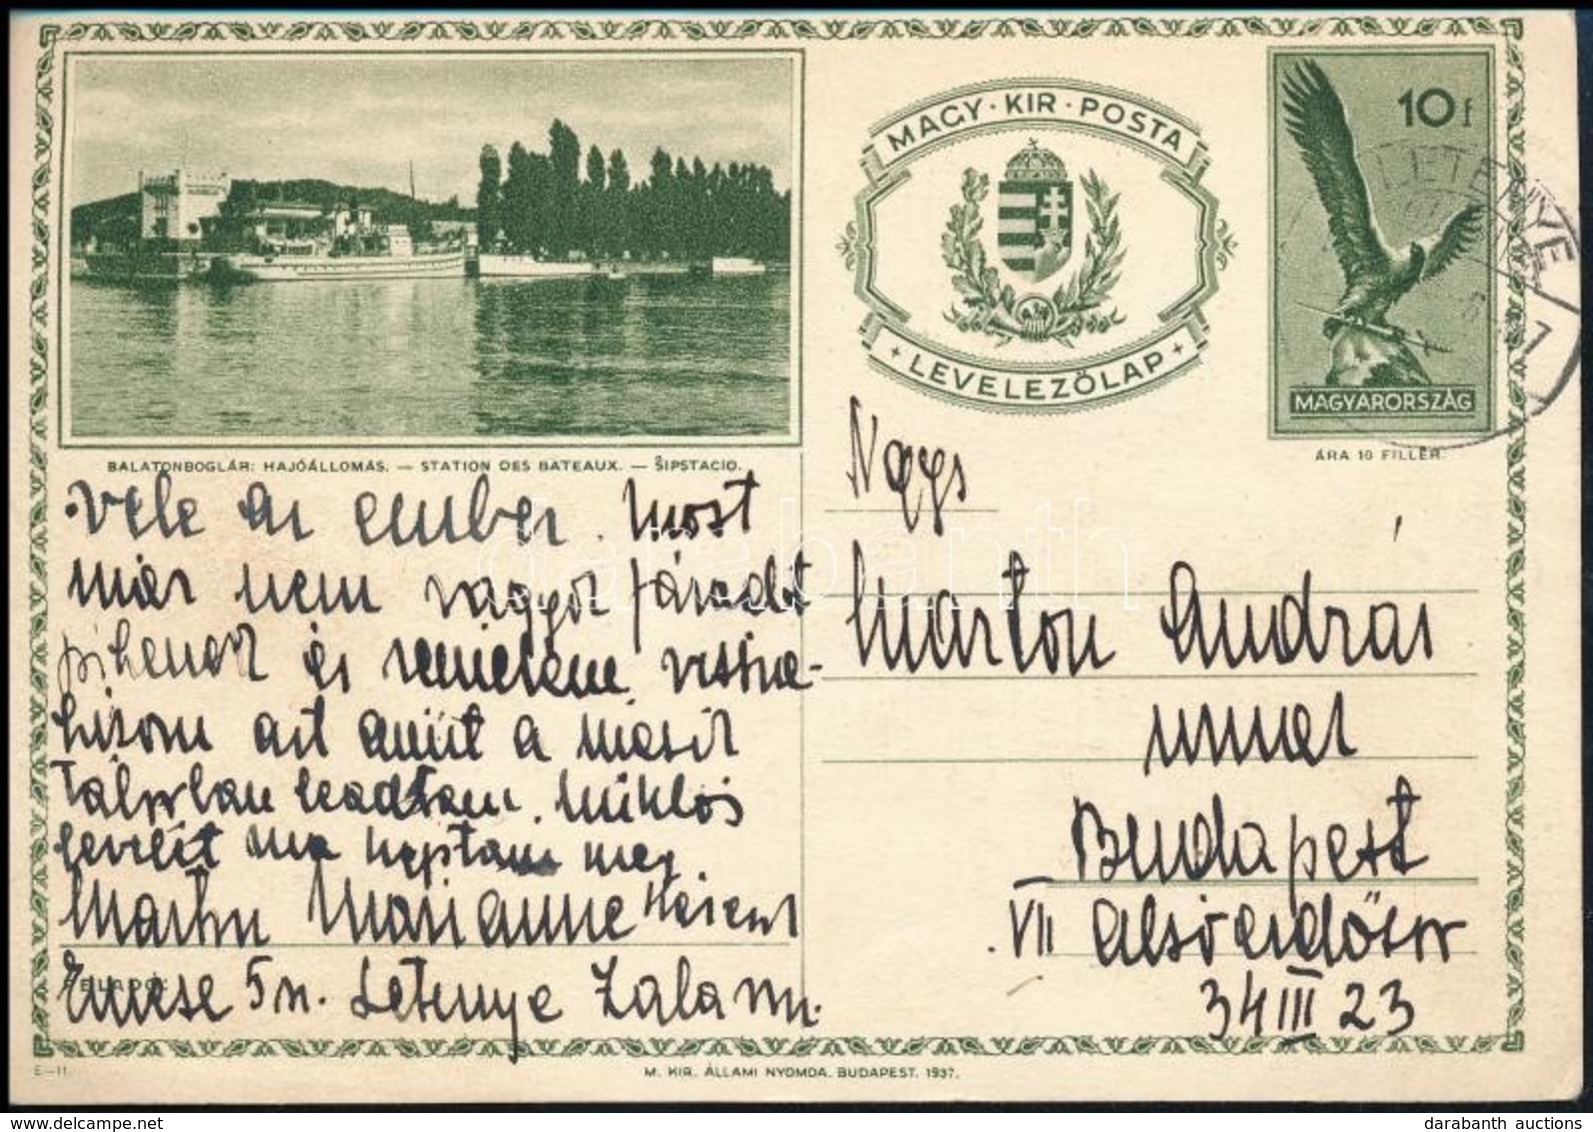 MAGY · KIR · POSTA
LEVELEZŐLAP
10 f
MAGYARORSZÁG
ÁRA 10 FILLÉR.
LETENYE
1
BALATONBOGLÁR: HAJÓÁLLOMÁS. — STATION DES BATEAUX. — ŠIPSTACIO.
vele az ember. Most
már nem vagyok fáradt
pihenek és remélem vissza-
hízom azt amit a másik
táborban leadtam. Miklós
levelét ma kaptam meg.
Marton Marianne
Emese 5 n. Letenye Zala m.
FELADÓ:
Nagys
Marton András
urnak
Budapest
VII Alsóerdősor
34 III 23
E—11.
M. KIR. ÁLLAMI NYOMDA. BUDAPEST. 1937.
darabanth
darabanth auctions